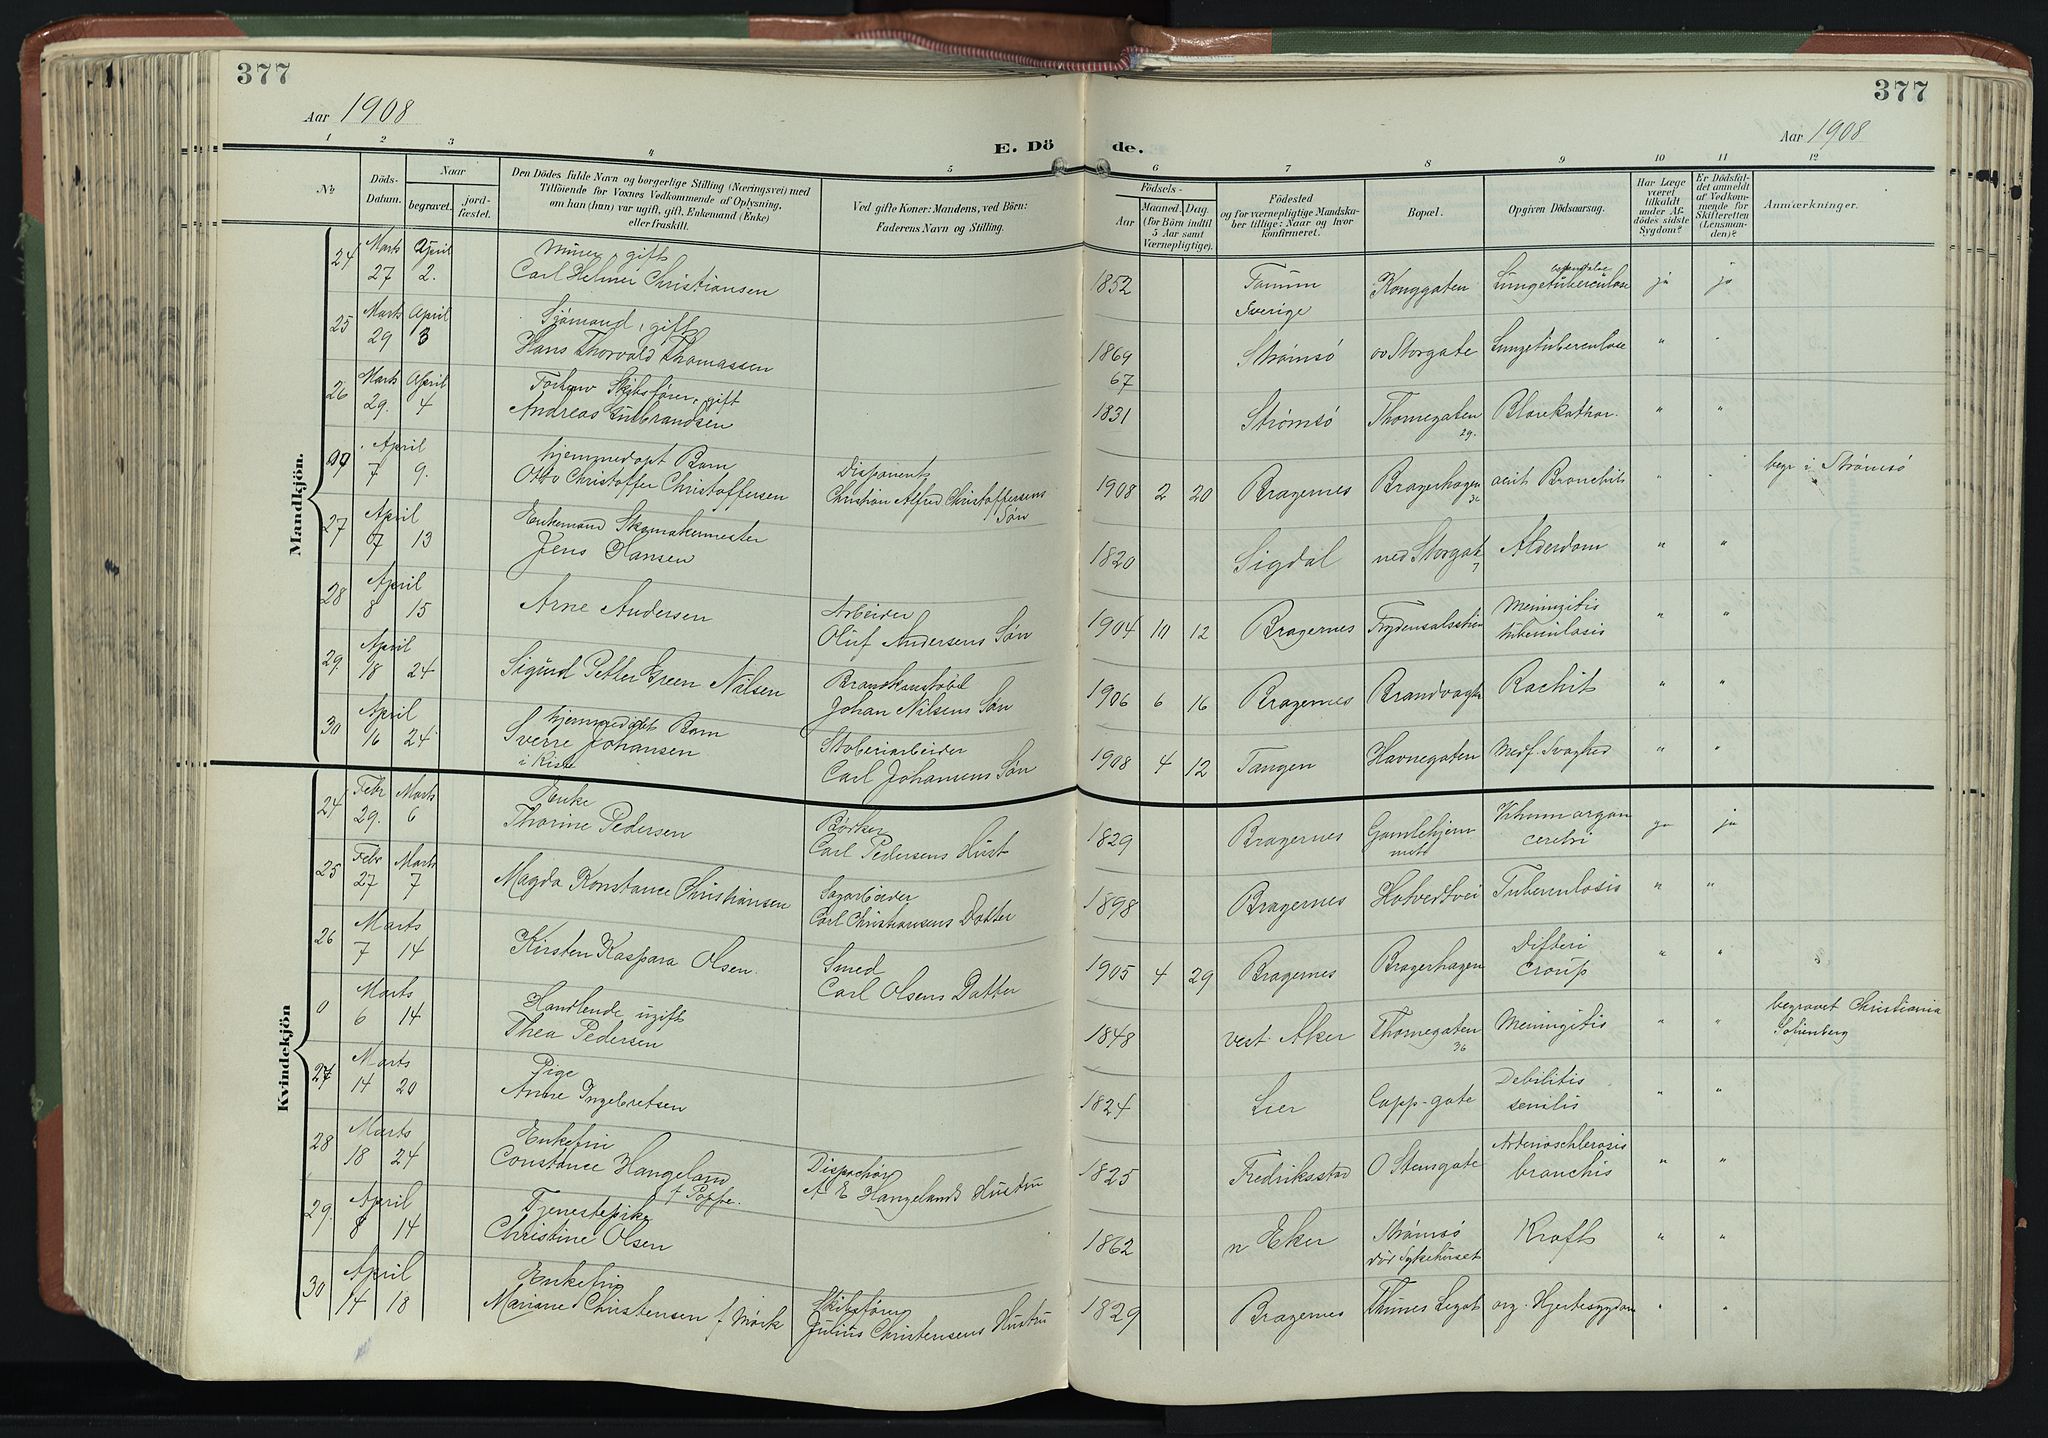 377
377
Aar 1908
Aar 1908
E. Dö de.
1 2 3 4 5 6 7 8 9 10 11 12
№
Döds-Datum.
Naar
begravet.
jord-fæstet.
Den Dödes fulde Navn og borgerlige Stilling (Næringsvei) med
Tilföiende for Voxnes Vedkommende af Oplysning,
om han (hun) var ugift, gift, Enkemand (Enke)
eller fraskilt.
Ved gifte Koner: Mandens, ved Börn:
Faderens Navn og Stilling.
Födsels-
Aar
Maaned.
Dag.
(for Börn indtil
5 Aar samt
Værnepligtige).
Födested
og for værnepligtige Mandska-
ber tillige: Naar og hvor
konfirmeret.
Bopæl.
Opgiven Dödsaarsag.
Har Læge
været
tilkaldt
under Af-
dödes sidste
Sygdom?
Er Dödsfal-
det anmeldt
af Vedkom-
mende for
Skifteretten
(Lensman-
den)?
Anmærkninger.
Mandkjön.
24 Marts 27 April 2. Murer, gift
Carl Helmer Christiansen 1852 Tanum Sverige Konggaten Lungetuberculose ja ja
25 Marts 29 April 3 Sjömand, gift
Hans Thorvald Thomassen 1869 67 Strømsö ov Storgate Lungetuberculose " "
26 Marts 29. April 4 Skibsfører, gift
Andreas Gulbrandsen 1831 Strømsö Thornegaten 29. Blærekathar. " "
April 7 9. hjemmedøpt Barn
Otto Christoffer Christoffersen Disponent
Christian Alfred Christoffersens Søn 1908 2 20 Bragernes Bragerhagen acut Bronchit " " begr i Strømsö
27 April 7 13 Enkemand Skomakermester
Jens Hansen 1820 Sigdal ned Storgate 7 Alderdom " "
28 April 8 15 Arne Andersen Arbeider
Oluf Andersens Søn 1904 10 12 Bragernes Meningitis
tuberculosis " "
29. April 18 24 Sigurd Petter Green Nilsen Brandkonstabel
Johan Nilsens Søn 1906 6 16 Bragernes Brandvagten Rachit " "
30 April 16 24 hjemmedøpt Barn
Sverre Johansen
i Kiste Carl Johansens Søn 1908 4 12 Tangen Havnegaten Medf. Svaghed " "
Kvindekjön
24 Febr 29. Marts 6 Enke
Thorine Pedersen Carl Pedersens Hust 1829 Bragernes Gamlehjemmet cerebri ja ja
25 Febr 27 Marts 7 Magda Konstance Christiansen Sagarbeider
Carl Christiansens Datter 1898 Bragernes Hotvedtvei Tuberculosis " "
26 Marts 7 14 Kirsten Kaspara Olsen. Smed
Carl Olsens Datter 1905 4 29 Bragernes Bragerhagen Difteri
Croup " "
0 Marts 6 14 Handlende ugift
Thea Pedersen 1848 vest. Aker Thornegaten 36 Meningitis " " begravet Christiania
Sofienberg
27 Marts 14 20 Pige
Anne Ingebretsen 1824 Lier Capp-gate Debilitis
senilis " "
28 Marts 18 24 Enkefru
Constance Hangeland
f Poppe. Dispachør
A E Hangelands Hustru 1825 Fredriksstad O Stensgate Arterioschlerosis
bronchis " "
29. April 8 14 Tjenestepike
Christine Olsen 1862 n Eker Strømsö
Sykehuset Kræft " "
30 April 14 18 Enkefru
Mariane Christensen f Mørk Skibsfører
Julius Christensens Hustru 1829 Bragernes Thunes Legat org. Hjertesygdom " "